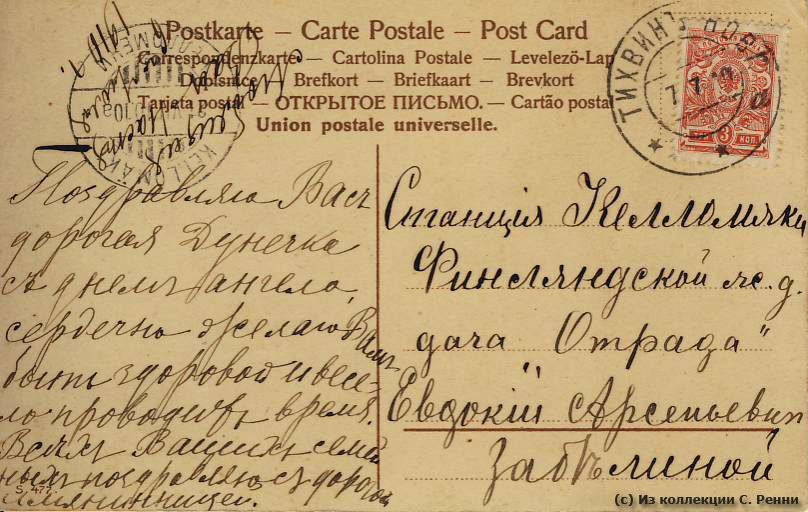 Postkarte — Carte Postale — Post Card
Correspondenzkarte — Cartolina Postale — Levelező-Lap
Dopisnice — Brefkort — Briefkaart — Brevkort
Tarjeta postal — ОТКРЫТОЕ ПИСЬМО. — Cartão postal
Union postale universelle.
ТИХВИНЪ НОВГ.
7 7
a
3 КОП.
KELLOMÄKI
Поздравляю Васъ
дорогая Дунечка
съ днемъ ангела,
сердечно желаю Вамъ
быть здоровой и весе-
ло проводить время.
Всѣхъ Вашихъ семей
ныхъ поздравляю съ дорогой
имянинницей.
Станція Келломяки
Финляндской ж. д.
дача „Отрада"
Евдокіи Арсеньевнѣ
Забѣлиной
S. 477
(с) Из коллекции С. Ренни